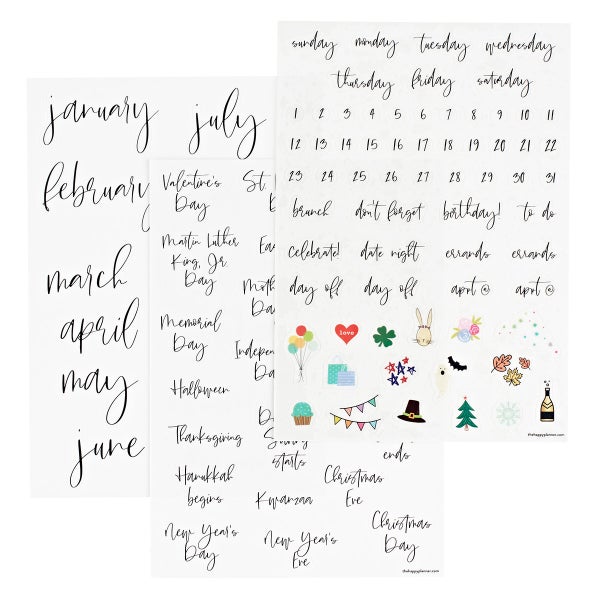 january
july
february
march
april
may
june
Valentine's
Day
St.
Martin Luther
King, Jr.
Day
Memorial
Day
Halloween
Thanksgiving
starts
ends
Hanukkah
begins
Kwanzaa
Christmas
Eve
New Year's
Day
New Year's
Eve
Christmas
Day
thehappyplanner.com
sunday monday tuesday wednesday
thursday friday saturday
1 2 3 4 5 6 7 8 9 10 11
12 13 14 15 16 17 18 19 20 21 22
23 24 25 26 27 28 29 30 31
brunch don't forget birthday! to do
celebrate! date night errands errands
day off day off apnt @ apnt @
love
thehappyplanner.com